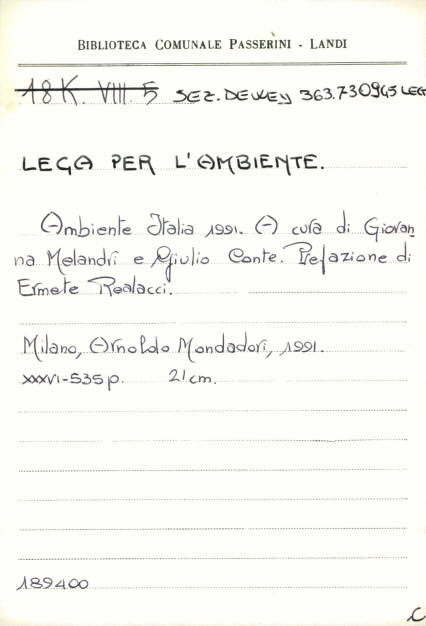 BIBLIOTECA COMUNALE PASSERINI - LANDI
18 K. VIII. 5 SEZ. DEWEY 363.730945 LEG
LEGA PER L'AMBIENTE.
Ambiente Italia 1991. A cura di Giovan
na Melandri e Giulio Conte. Prefazione di
Ermete Realacci.
Milano, Arnoldo Mondadori, 1991.
XXXVI-535 p. 21 cm.
189400
C